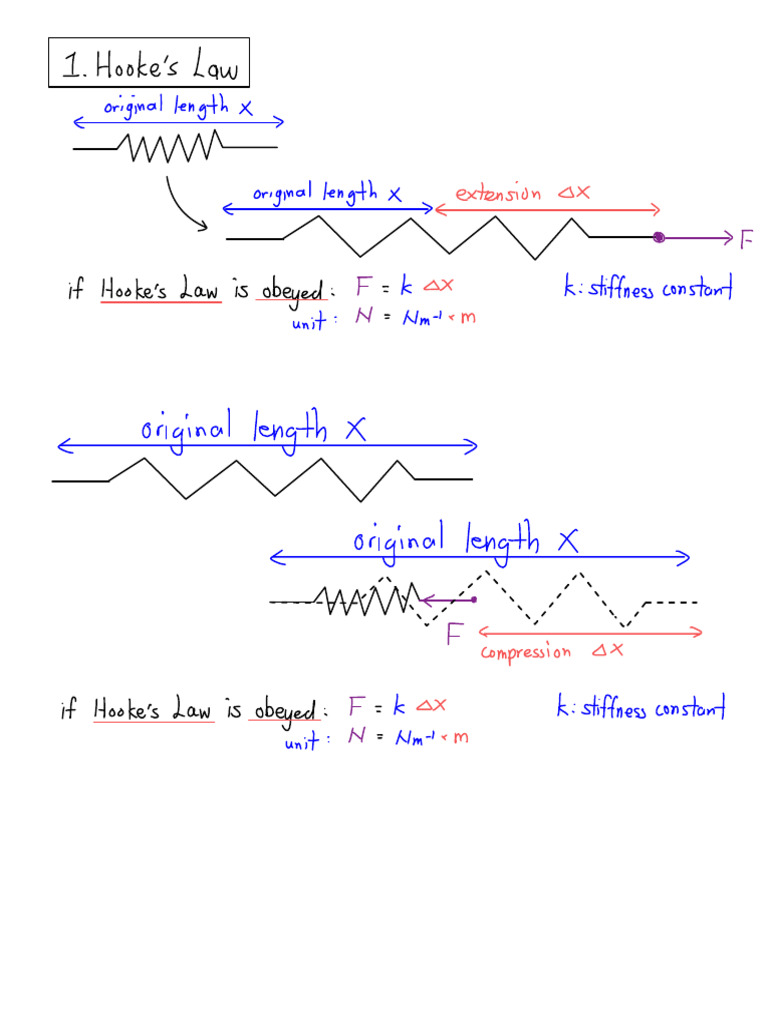 1. Hooke's Law
original length x
original length x extension Δx
F
if Hooke's Law is obeyed: F = k Δx k: stiffness constant
unit: N = Nm⁻¹ × m
original length x
original length x
F
compression Δx
if Hooke's Law is obeyed: F = k Δx k: stiffness constant
unit: N = Nm⁻¹ × m